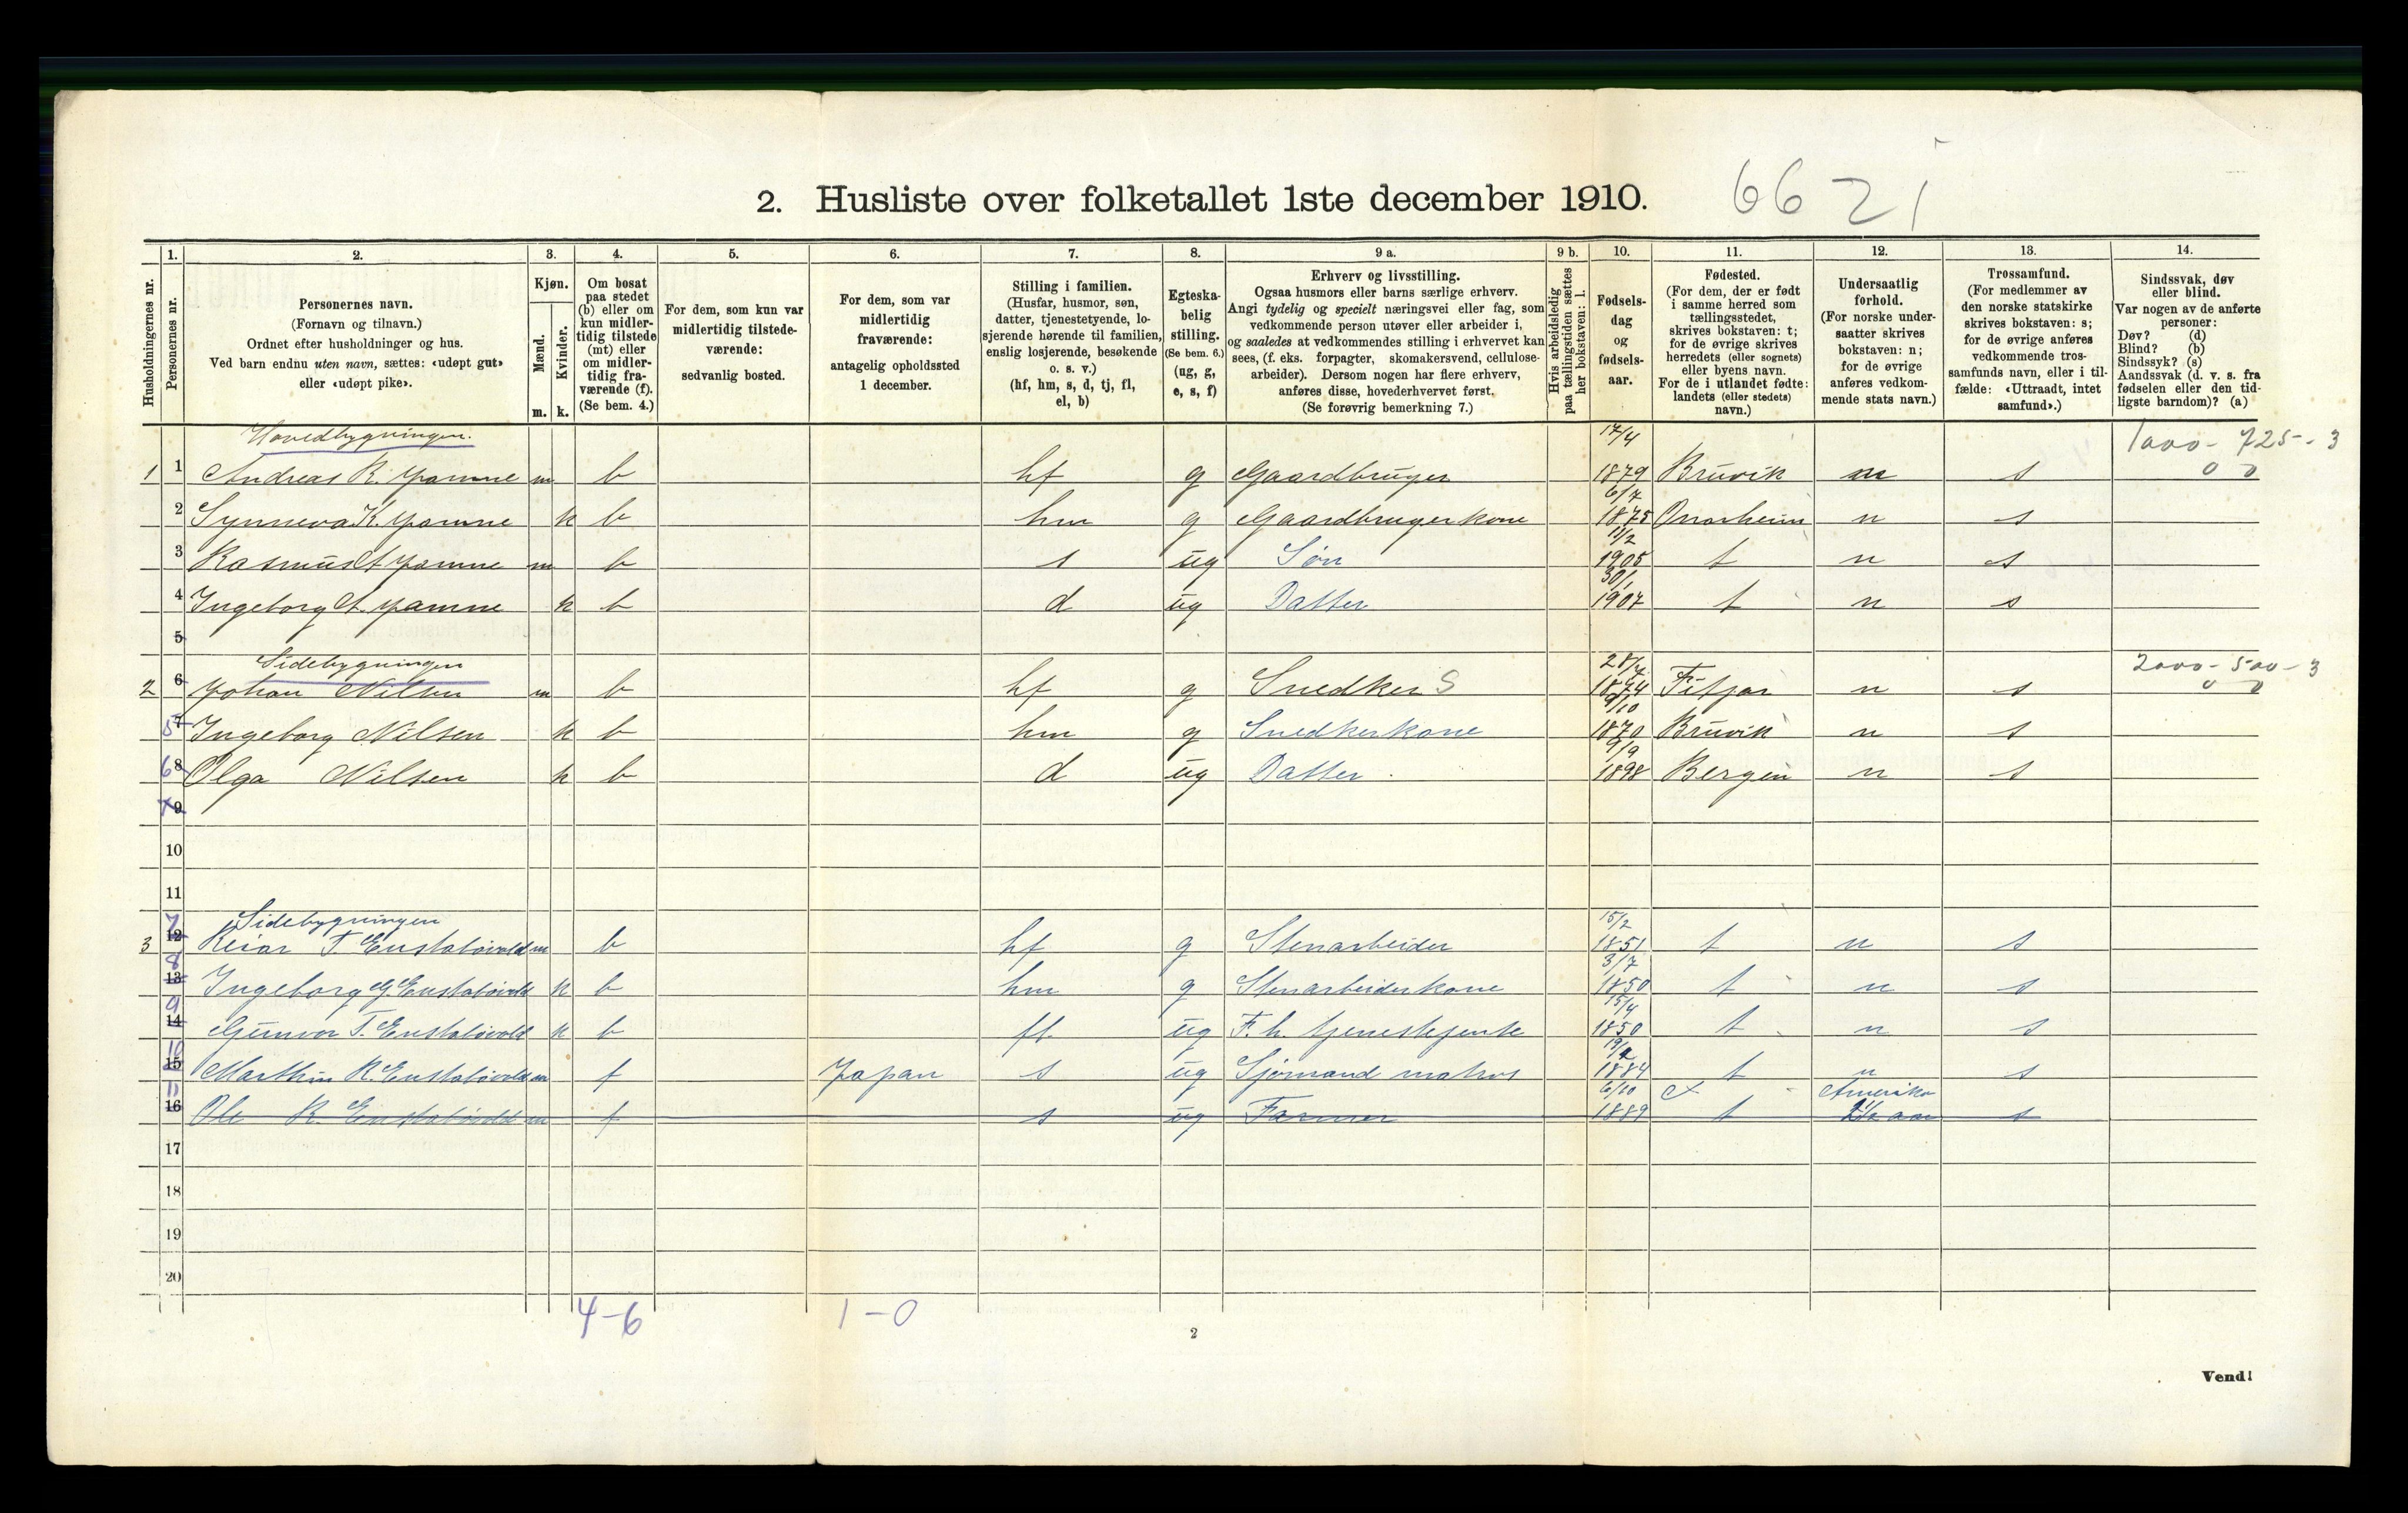 2. Husliste over folketallet 1ste december 1910.
6621
1. 2. 3. 4. 5. 6. 7. 8. 9 a. 9 b. 10. 11. 12. 13. 14.
Husholdningernes nr.
Personernes nr.
Personernes navn.
(Fornavn og tilnavn.)
Ordnet efter husholdninger og hus.
Ved barn endnu uten navn, sættes: «udøpt gut»
eller «udøpt pike».
Kjøn.
Mænd.
Kvinder.
m. k.
Om bosat
paa stedet
(b) eller om
kun midler-
tidig tilstede
(mt) eller
om midler-
tidig fra-
værende (f).
(Se bem. 4.)
For dem, som kun var
midlertidig tilstede-
værende:
sedvanlig bosted.
For dem, som var
midlertidig
fraværende:
antagelig opholdssted
1 december.
Stilling i familien.
(Husfar, husmor, søn,
datter, tjenestetyende, lo-
sjerende hørende til familien,
enslig losjerende, besøkende
o. s. v.)
(hf, hm, s, d, tj, fl,
el, b)
Egteska-
belig
stilling.
(Se bem. 6.)
(ug, g,
e, s, f)
Erhverv og livsstilling.
Ogsaa husmors eller barns særlige erhverv.
Angi tydelig og specielt næringsvei eller fag, som
vedkommende person utøver eller arbeider i,
og saaledes at vedkommendes stilling i erhvervet kan
sees, (f. eks. forpagter, skomakersvend, cellulose-
arbeider). Dersom nogen har flere erhverv,
anføres disse, hovederhvervet først.
(Se forøvrig bemerkning 7.)
Hvis arbeidsledig
paa tællingstiden sættes
her bokstaven: l.
Fødsels-
dag
og
fødsels-
aar.
Fødested.
(For dem, der er født
i samme herred som
tællingsstedet,
skrives bokstaven: t;
for de øvrige skrives
herredets (eller sognets)
eller byens navn.
For de i utlandet fødte:
landets (eller stedets)
navn.)
Undersaatlig
forhold.
(For norske under-
saatter skrives
bokstaven: n;
for de øvrige
anføres vedkom-
mende stats navn.)
Trossamfund.
(For medlemmer av
den norske statskirke
skrives bokstaven: s;
for de øvrige anføres
vedkommende tros-
samfunds navn, eller i til-
fælde: «Uttraadt, intet
samfund».)
Sindssvak, døv
eller blind.
Var nogen av de anførte
personer:
Døv? (d)
Blind? (b)
Sindssyk? (s)
Aandssvak (d. v. s. fra
fødselen eller den tid-
ligste barndom)? (a)
Hovedbygningen. 17/4 1000 - 725 - 3
1 1 Andreas R. m b hf g Gaardbruger 1879 Bruvik n s 0 0
6/7
2 Synneva K. k b hm g Gaardbrugerkone 1875 Onarheim n s
11/2
3 Rasmus A. m b s ug Søn 1905 t n s
30/1
4 Ingeborg A. k b d ug Datter 1907 t n s
5
Sidebygningen 2000 - 500 - 3
2 6 Johan Nilsen m b hf g Snedker S 1874 Fitjar n s 0 0
9/10
5 7 Ingeborg Nilsen k b hm g Snedkerkone 1870 Bruvik n s
9/9
6 8 Olga Nilsen k b d ug Datter 1898 Bergen n s
7 9
10
11
Sidebygningen 15/2
3 7 12 T. m b hf g Stenarbeider 1851 t n s
3/7
8 13 Ingeborg G. k b hm g Stenarbeiderkone 1850 t n s
15/4
9 14 Gunvor T. k b fl ug F. h. tjenestejente 1850 t n s
10 15 Marthin R. m f Japan s ug Sjømand matros 1884 t n s
6/10 Amerika
11 16 Ole R. m f s ug Farmer 1889 t s
17
18
19
20
4-6 1-0
2
Vend!